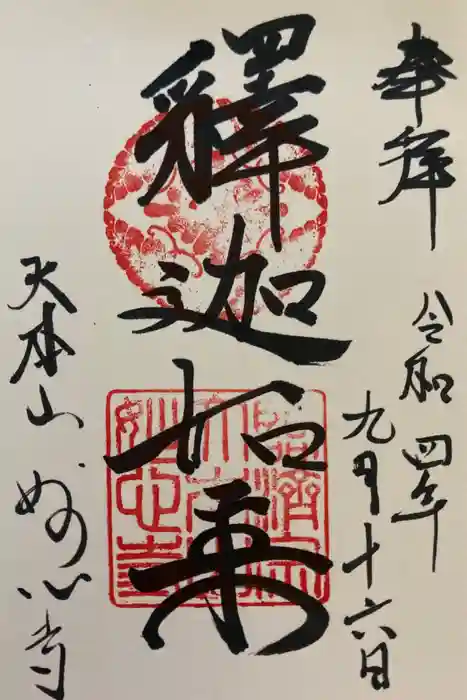 奉拝
令和四年
九月十六日
釋迦如来
臨濟宗
大本山
妙心寺
大本山 妙心寺